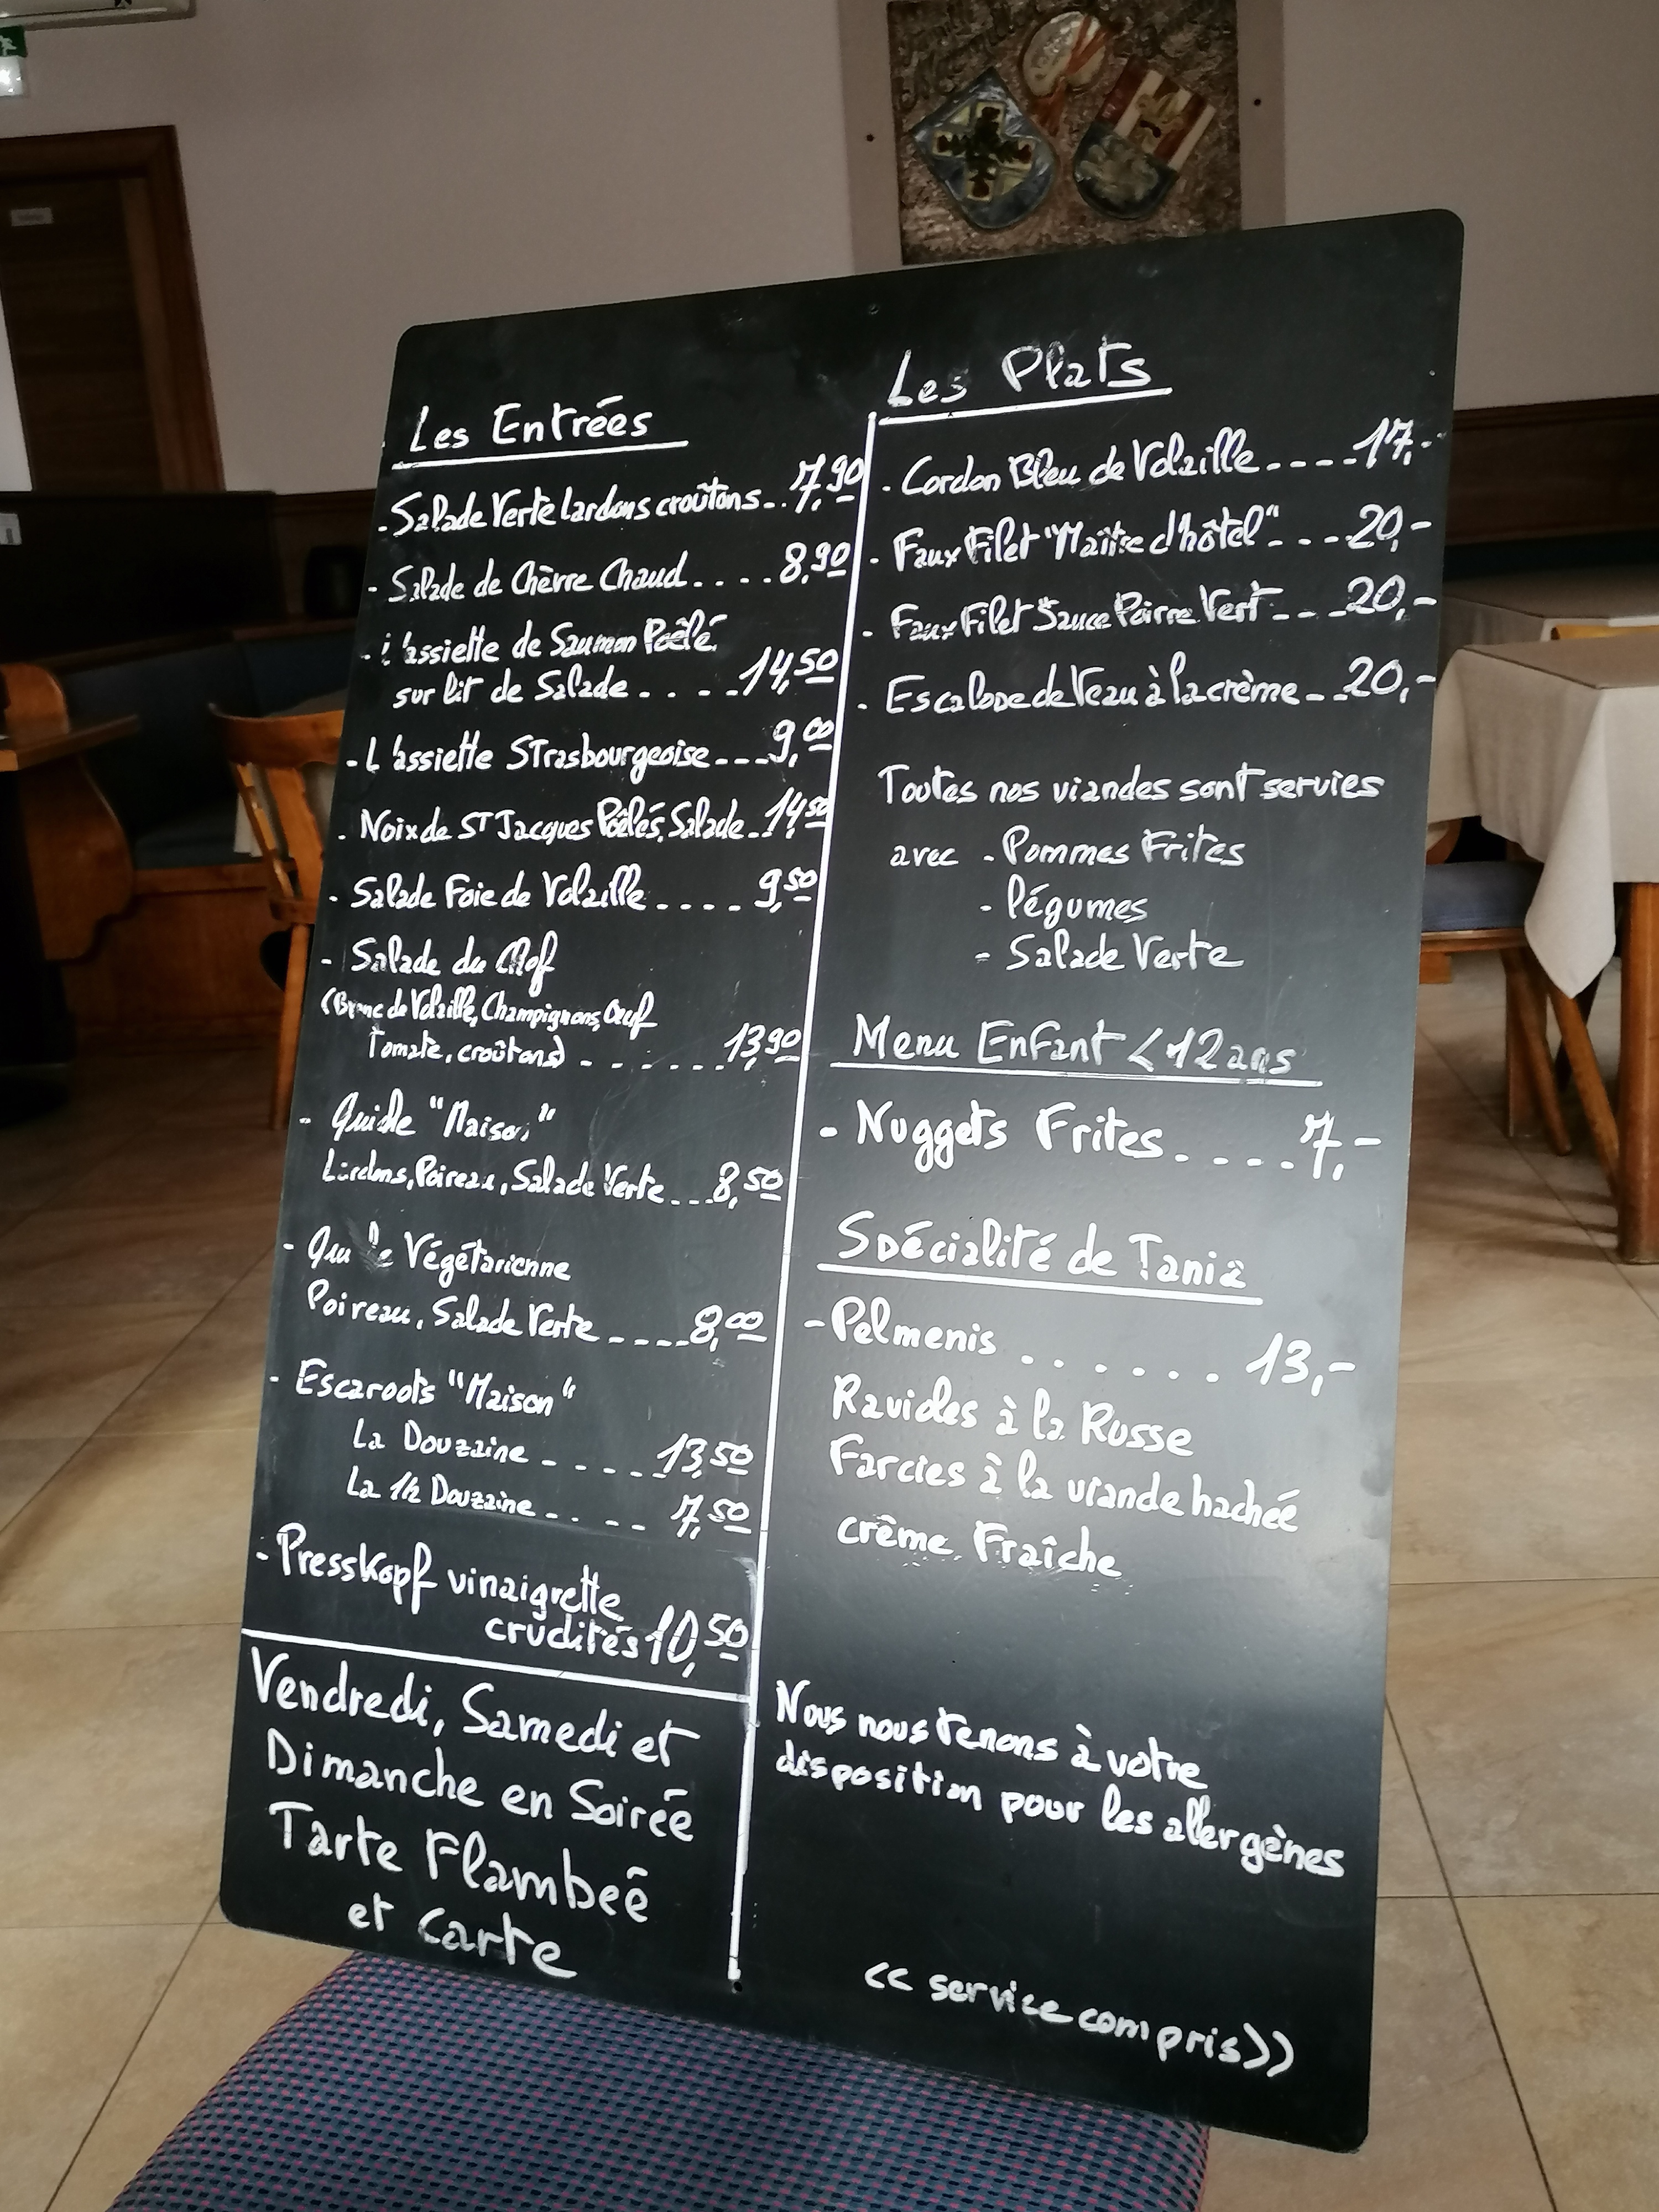 Les Entrées
- Salade Verte lardons croûtons.. 7,90
- Salade de Chèvre Chaud.... 8,90
- L'assiette de Saumon Poêlé
sur lit de Salade.... 14,50
- L'assiette Strasbourgeoise---9,00
- Noix de ST Jacques Poêlés, Salade..14,50
- Salade Foie de Volaille.... 9,50
- Salade du Chef
(Blanc de Volaille, Champignons, Œuf
Tomate, croûtons)....... 13,90
- Quiche "Maison"
Lardons, Poireau, Salade Verte...8,50
- Quiche Végétarienne
Poireau, Salade Verte ----8,00
- Escargots "Maison"
La Douzaine ----- 13,50
La 1/2 Douzaine.. -- 7,50
- Presskopf vinaigrette
crudités 10,50
Vendredi, Samedi et
Dimanche en Soirée
Tarte Flambeé
et carte
Les Plats
- Cordon Bleu de Volaille....17,-
- Faux Filet "Maître d'hôtel"....20,-
- Faux Filet Sauce Poivre Vert....20,-
- Escalope de Veau à la crème...20,-
Toutes nos viandes sont servies
avec - Pommes Frites
- légumes
- Salade Verte
Menu Enfant < 12 ans
- Nuggets Frites.....7,-
Spécialité de Tania
- Pelmenis ...... 13,-
Ravioles à la Russe
Farcies à la viande hachée
crême Fraîche
Nous nous tenons à votre
disposition pour les allergènes
<< service compris >>